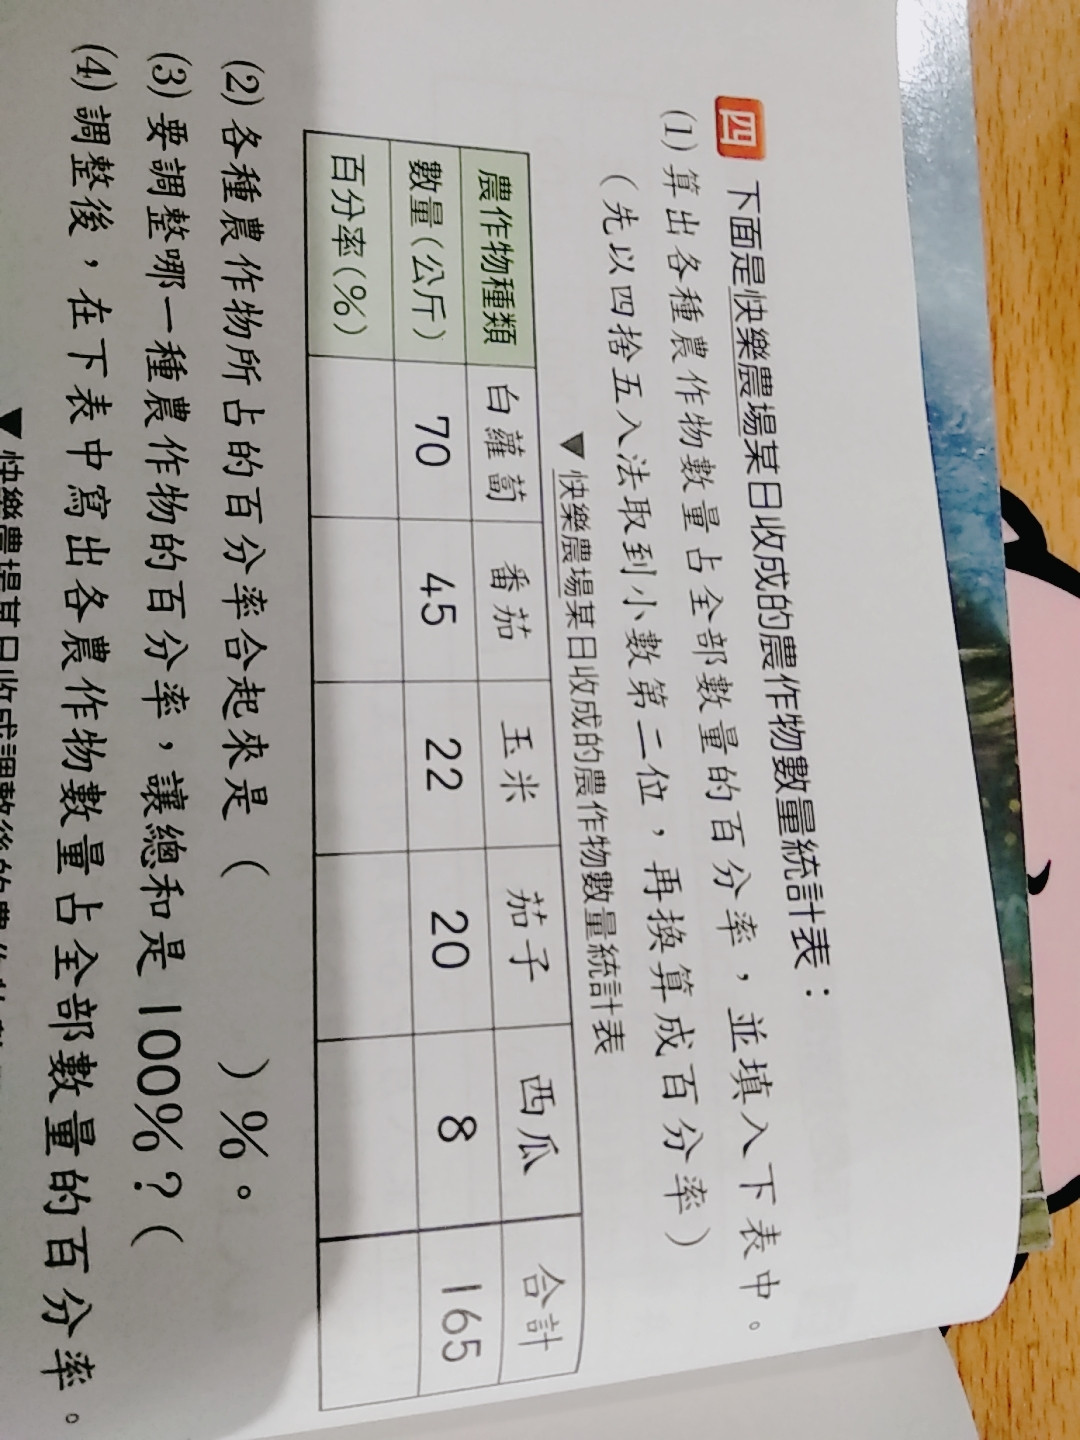 四 下面是快樂農場某日收成的農作物數量統計表：
(1)算出各種農作物數量占全部數量的百分率，並填入下表中。
（先以四捨五入法取到小數第二位，再換算成百分率）
▼快樂農場某日收成的農作物數量統計表
農作物種類 白蘿蔔 番茄 玉米 茄子 西瓜 合計
數量(公斤) 70 45 22 20 8 165
百分率(%)
(2)各種農作物所占的百分率合起來是（ ）%。
(3)要調整哪一種農作物的百分率，讓總和是100%？（
(4)調整後，在下表中寫出各農作物數量占全部數量的百分率。
▼快樂農場某日收成調整後的農作物